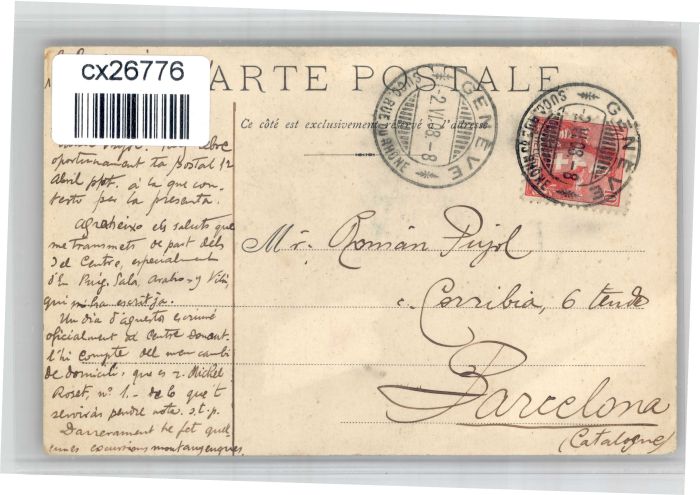 cx26776
CARTE POSTALE
Ce côté est exclusivement réservé à l'adresse
GENÈVE
-2.VI.08.-8
SUCC. RUE DU RHÔNE
GENÈVE
VI.08.-8
SUCC. RUE DU RHÔNE
oportunament ta postal 12
Abril ppt. á la que con-
testo per la presenta.
Agraheixo els saluts que
me transmets de part dels
del Centre, especialment
d'En Puig, Sala, y Vila,
qui m'ha escrit ja.
Un dia d'aquestos escriuré
oficialment al Centre Donant-
l'hi compte del meu cambi
de domicili, que es r. Michel
Roset, nº 1.- de lo que't
serviràs pendre nota. s.t.p.
Darrerament he fet quel-
cunes excursions montanyenques.
Mr. Román Pujol
c. Corribia, 6 tenda
Barcelona
(Catalogne)